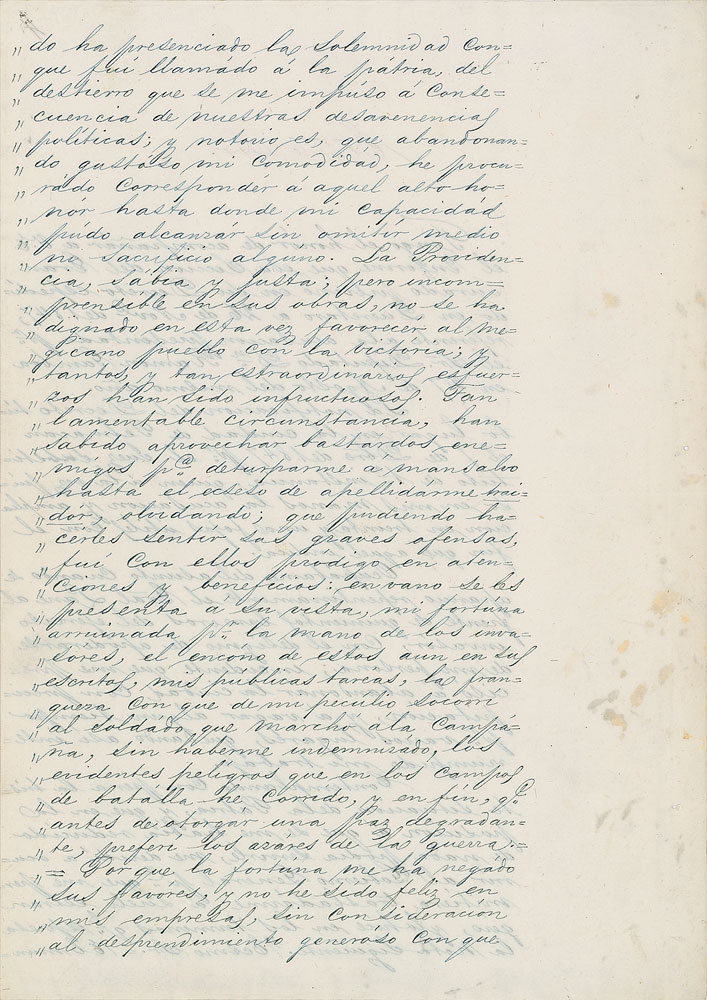 „ do ha presenciado las solemnidad con=
„ que fuí llamádo á la pátria, del
„ destierro que se me impúso á conse=
„ cuencia de nuestras desavenencias
„ políticas; y notorio es, que abandonan=
„ do gustóso mi comodidád, he procu=
„ rádo corresponder á aquel alto ho=
„ nór hasta donde mi capacidád
„ púdo alcanzár sin omitir medio
„ ni sacrificio algúno. La Providen=
„ cia, sábia y justa; pero incom=
„ prensible en sus obras, no se ha
„ dignado en esta vez favorecér al me=
„ gicano pueblo con la victória; y
„ tantos, y tan estraordinários esfuer=
„ zos han sido infructuosos. Tan
„ lamentable circunstancia, han
„ sabido aprovechár bastárdos ene=
„ migos pa. deturparme á mansalvo
„ hasta el ecseso de apellidárme trai=
„ dor, olvidando; que pudiendo ha=
„ cérles sentir sus graves ofensas,
„ fuí con ellos pródigo en aten=
„ ciones y beneficios: en vano se les
„ presenta á su vista, mi fortúna
„ arruináda pr. la mano de los inva=
„ sóres, el encóno de estos aún en sus
„ escritos, mis públicas tareas, la fran=
„ queza con que de mi pecúlio socorrí
„ al soldádo que marchó á la campá=
„ ña, sin haberme indemnizádo, los
„ evidentes pelígros que en los campos
„ de batálla he corrido, y en fin, qe.
„ antes de otorgár una paz degradan=
„ te, preferí los azáres de la guerra.=
„ = Por que la fortúna me ha negádo
„ sus favóres, y no he sido felíz en
„ mis empresas, sin consideración
„ al desprendimiento generóso con que